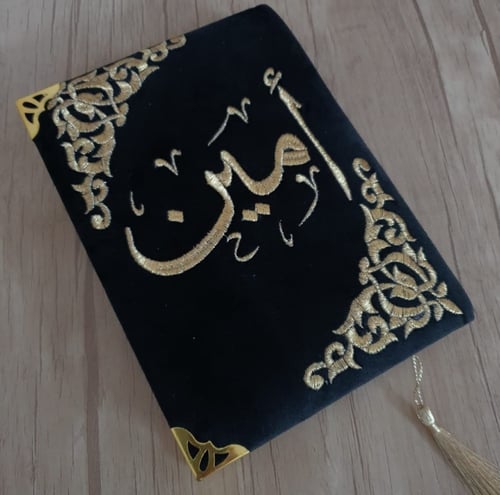 أمين